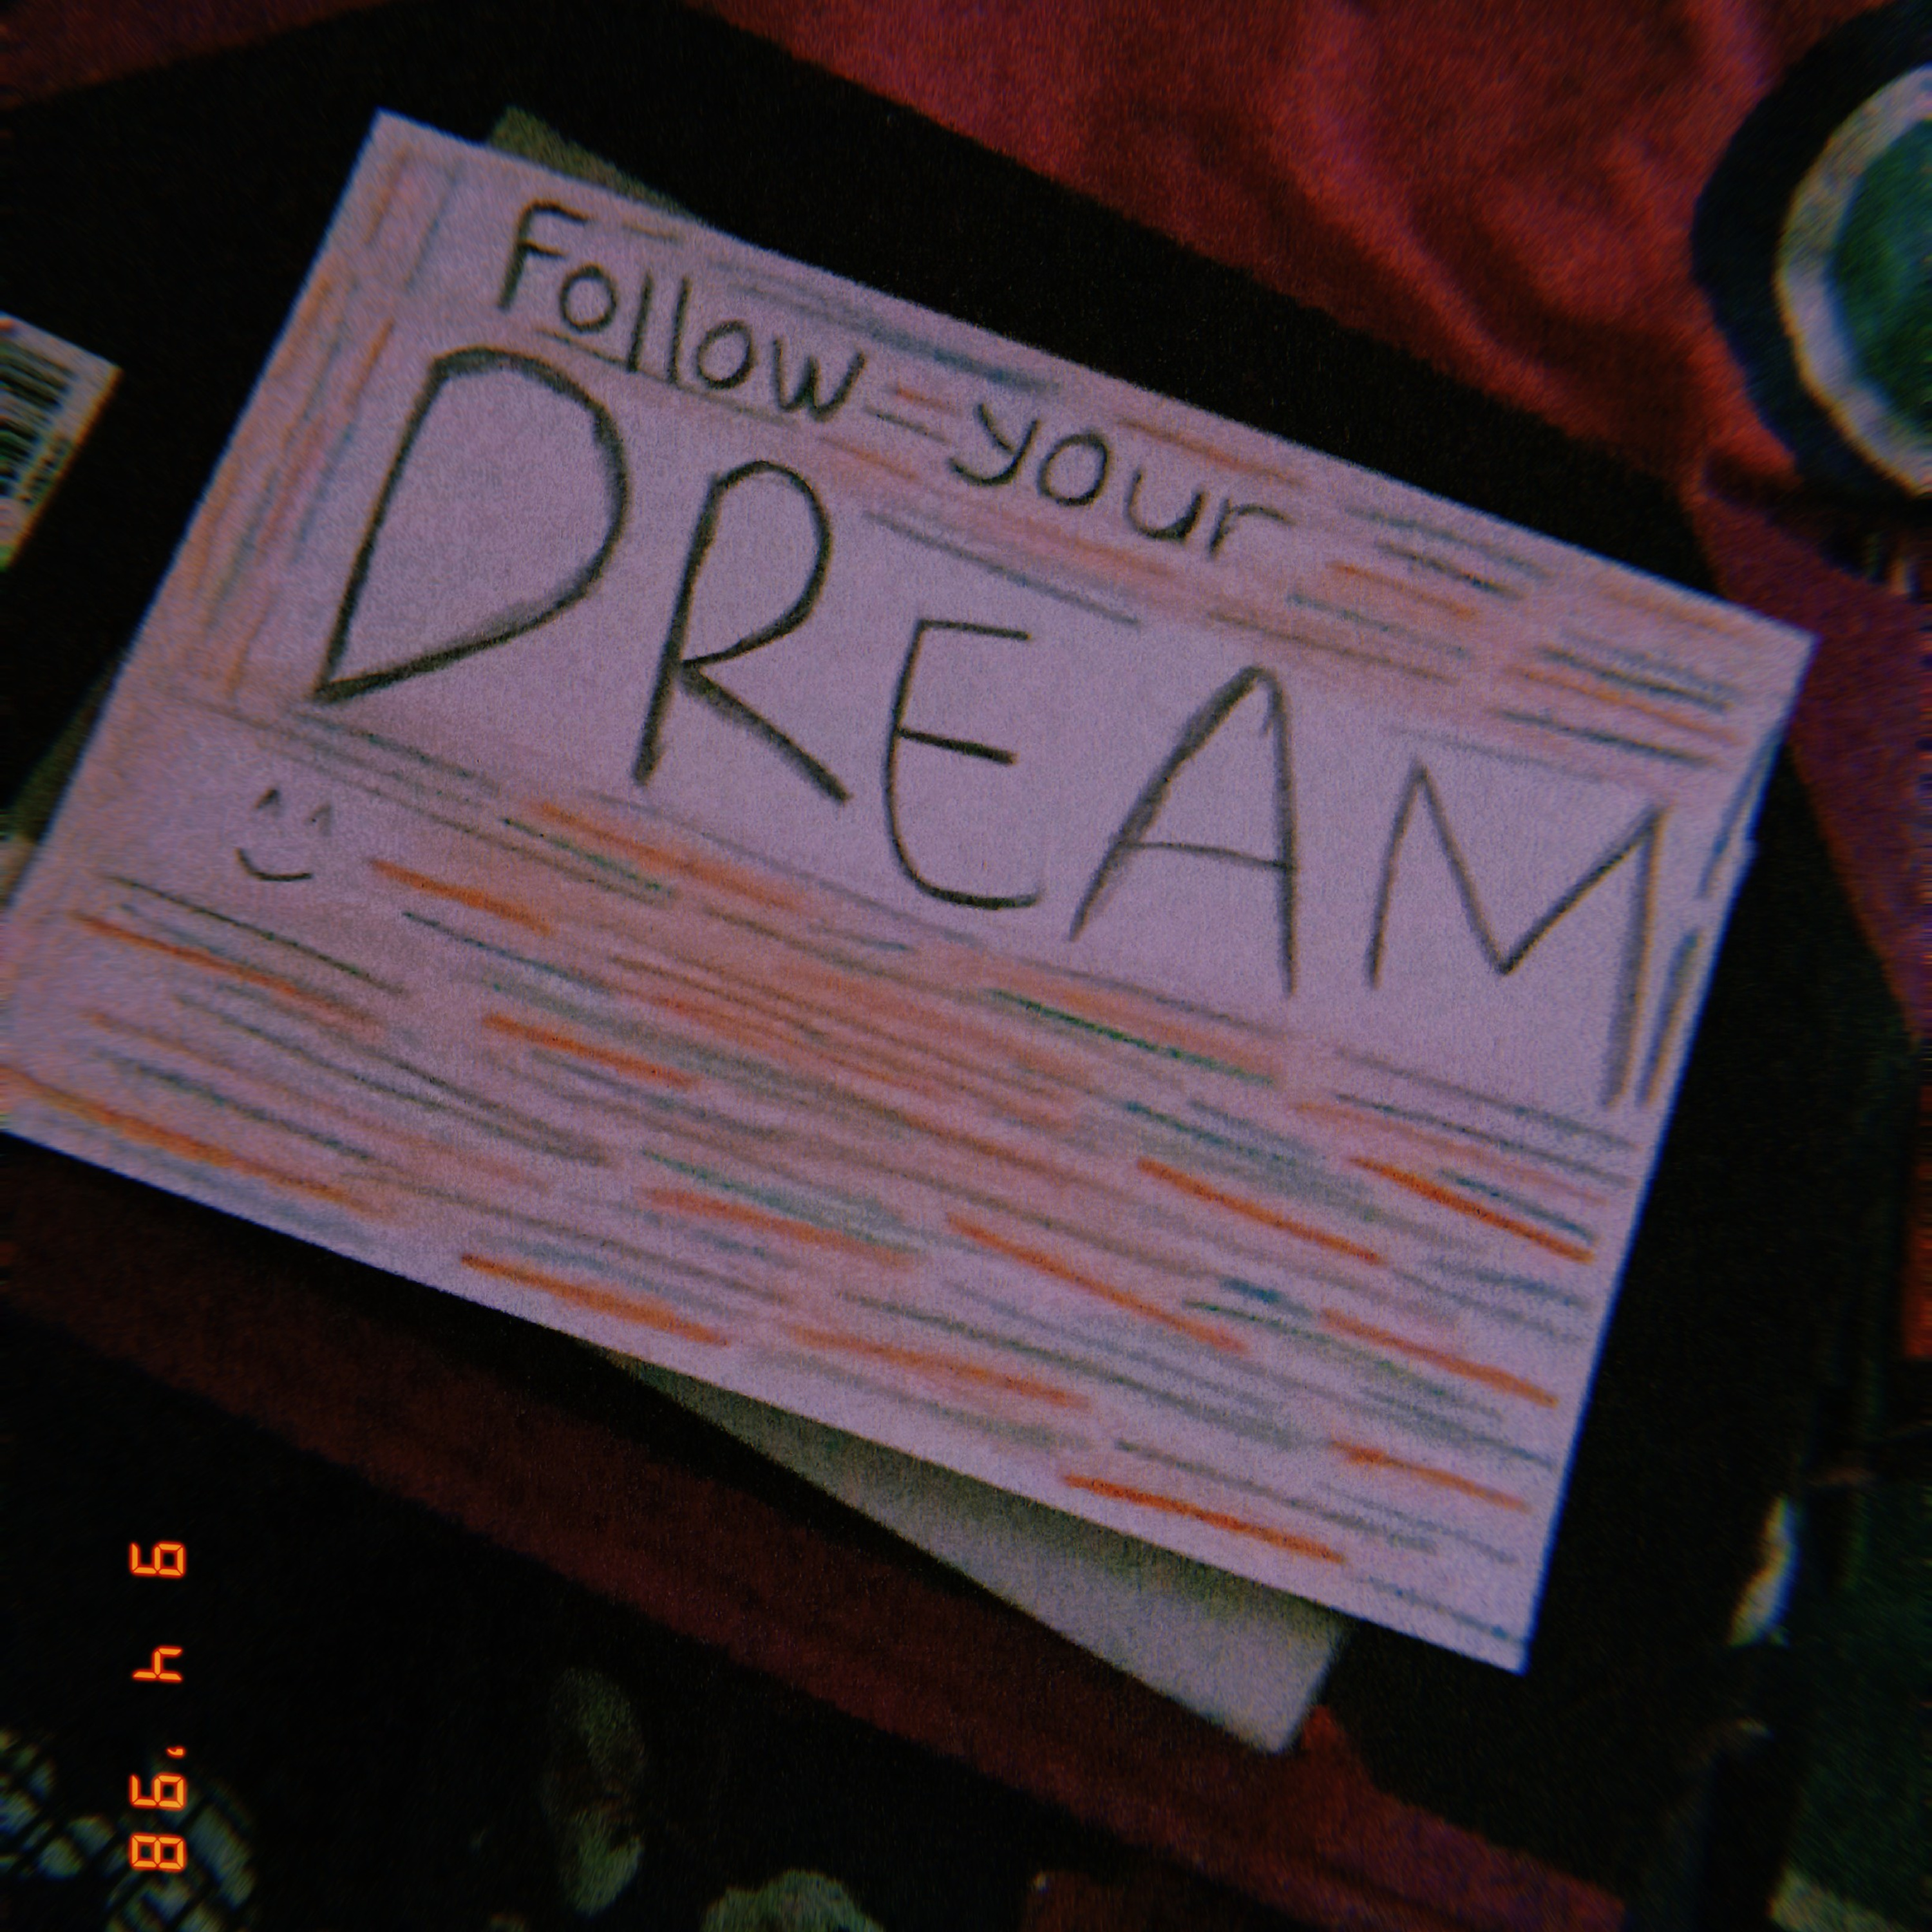 Follow your
DREAM
9 4 '98